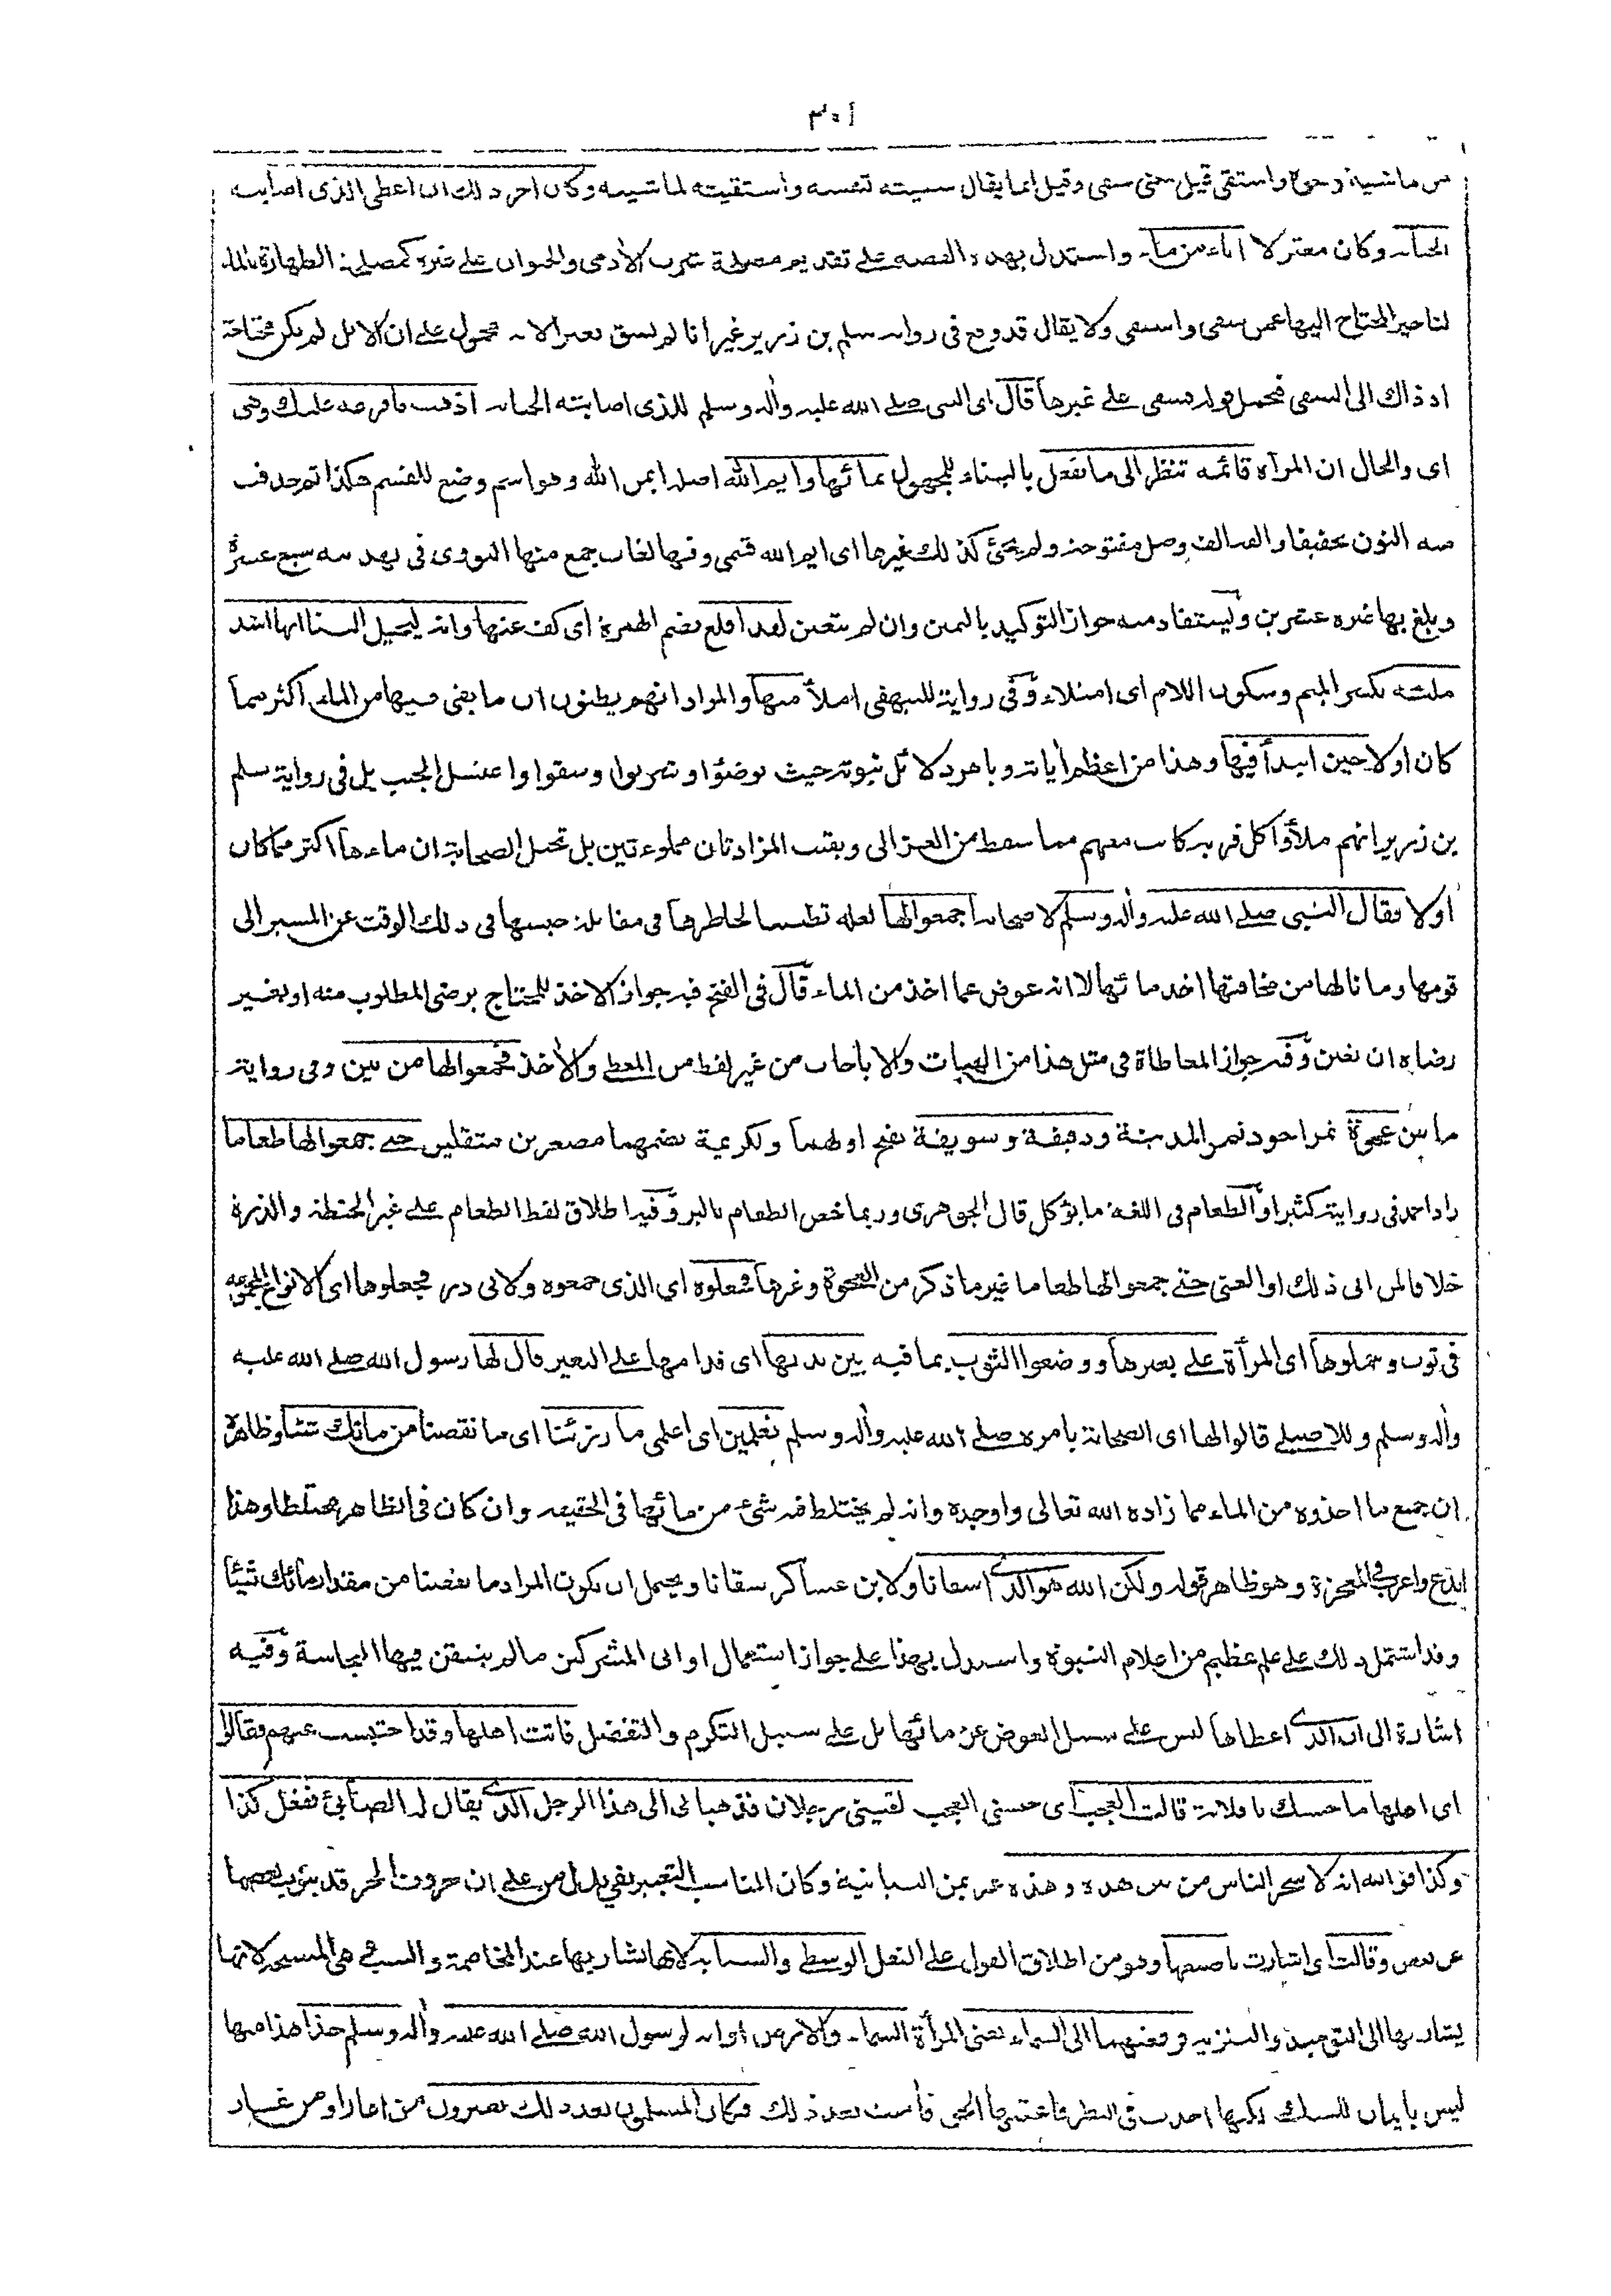 ٣٠١
من ماشية ونحوه واستقى قيل بمعنى سقى وقيل انما يقال سقيته لنفسه واستقيته لماشيته وكان اخر ذلك ان اعطى الذى اصابته
الجنابة وكان معتزلا اناء من ماء واستدل بهذه القصة على تقديم مصلحة شرب الآدمى والحيوان على غيره كمصلحة الطهارة بالماء
لتاخير المحتاج اليها عمن سقى واستقى ولا يقال قد وقع فى رواية سلم بن زرير غير انا لم نسق بعيرا لانه محمول على ان الابل لم يكن محتاجة
اذ ذاك الى السقى فيحمل قوله فسقى على غيرها قال اى النبى صلى الله عليه واله وسلم للذى اصابته الجنابة اذهب فافرغه عليك وهى
اى والحال ان المرآة قائمة تنظر الى ما يفعل بالبناء للمجهول بمائها وايم الله اصله ايمن الله وهو اسم وضع للقسم هكذا ثم حذف
منه النون تخفيفا والفه الف وصل مفتوحة ولم يجئ كذلك غيرها اى ايم الله قسمى وفيها لغات جمع منها النووى فى تهذيبه سبع عشرة
وبلغ بها غيره عشرين ويستفاد منه جواز التوكيد باليمين وان لم يتعين لقد اقلع بضم الهمزة اى كف عنها وانه ليخيل الينا انها اشد
ملئة بكسر الميم وسكون اللام اى امتلاء وفى رواية للبيهقى املأ منها والمراد انهم يظنون ان ما بقى فيها من الماء اكثر مما
كان اولا حين ابتدأ فيها وهذا من اعظم آياته وباهر دلائل نبوته حيث توضؤا وشربوا وسقوا واغتسل الجنب بل فى رواية سلم
بن زرير انهم ملأوا كل قربة كانت معهم مما سقط من العزالى وبقيت المزادتان مملوءتين بل تخيل الصحابة ان ماءها اكثر مما كان
اولا فقال النبى صلى الله عليه واله وسلم لاصحابه اجمعوا لها لعله تطييبا لخاطرها فى مقابلة حبسها فى ذلك الوقت عن المسير الى
قومها وما نالها من مخافتها اخذ مائها لا انه عوض عما اخذ من الماء قال فى الفتح فيه جواز الاخذ للمحتاج برضى المطلوب منه او بغير
رضاه ان تعين وفيه جواز المعاطاة فى مثل هذا من الهبات والاباحات من غير لفظ من المعطى والآخذ فجمعوا لها من بين وفى رواية
ما بين عجوة تمر اجود تمر المدينة ودقيقة وسويقة بفتح اولهما ولكريمة بضمهما مصغرين مثقلين حتى جمعوا لها طعاما
زاد احمد فى روايته كثيرا والطعام فى اللغة ما يؤكل قال الجوهرى وربما خص الطعام بالبر وفيه اطلاق لفظ الطعام على غير الحنطة والذرة
خلافا لمن ابى ذلك او المعنى حتى جمعوا لها طعاما غير ما ذكر من العجوة وغيرها فجعلوه اى الذى جمعوه ولابى ذر فجعلوها اى الانواع المجموعة
فى ثوب وحملوها اى المرأة على بعيرها ووضعوا الثوب بما فيه بين يديها اى قدامها على البعير قال لها رسول الله صلى الله عليه
واله وسلم وللاصيلى قالوا لها اى الصحابة بامره صلى الله عليه واله وسلم تعلمين اى اعلمى ما رزئنا اى ما نقصنا من مائك شيئا وظاهره
ان جميع ما اخذوه من الماء مما زاده الله تعالى واوجده وانه لم يختلط فيه شئ من مائها فى الحقيقة وان كان فى الظاهر مختلطا وهذا
ابدع واغرب فى المعجزة وهو ظاهر قوله ولكن الله هو الذى اسقانا ولابن عساكر سقانا ويحتمل ان يكون المراد ما نقصنا من مقدار مائك شيئا
وقد اشتمل ذلك على علم عظيم من اعلام النبوة واستدل بهذا على جواز استعمال اوانى المشركين ما لم يتيقن فيها النجاسة وفيه
اشارة الى ان الذى اعطاها ليس على سبيل العوض عن مائها بل على سبيل التكرم والتفضل فاتت اهلها وقد احتبست عنهم فقالوا
اى اهلها ما حبسك يا فلانة قالت العجب اى حبسنى العجب لقينى رجلان فذهبا بى الى هذا الرجل الذى يقال له الصابئ ففعل كذا
وكذا فوالله انه لاسحر الناس من بين هذه وهذه عبر بمن البيانية وكان المناسب التعبير بفى بدل من على ان حروف الجر قد ينوب بعضها
عن بعض وقالت اى اشارت باصبعها وهو من اطلاق القول على الفعل الوسطى والسبابة لانها يشار بها عند المخاصمة والسب فى هى المسبحة لانها
يشار بها الى التوحيد والتنزيه فرفعتهما الى السماء تعنى المرأة السماء والارض او انه لرسول الله صلى الله عليه واله وسلم حقا هذا منها
ليس بايمان للشك لكنها اخذت فى النظر فاعقبها الحق فآمنت بعد ذلك فكان المسلمون بعد ذلك يغيرون من اغار او من غار